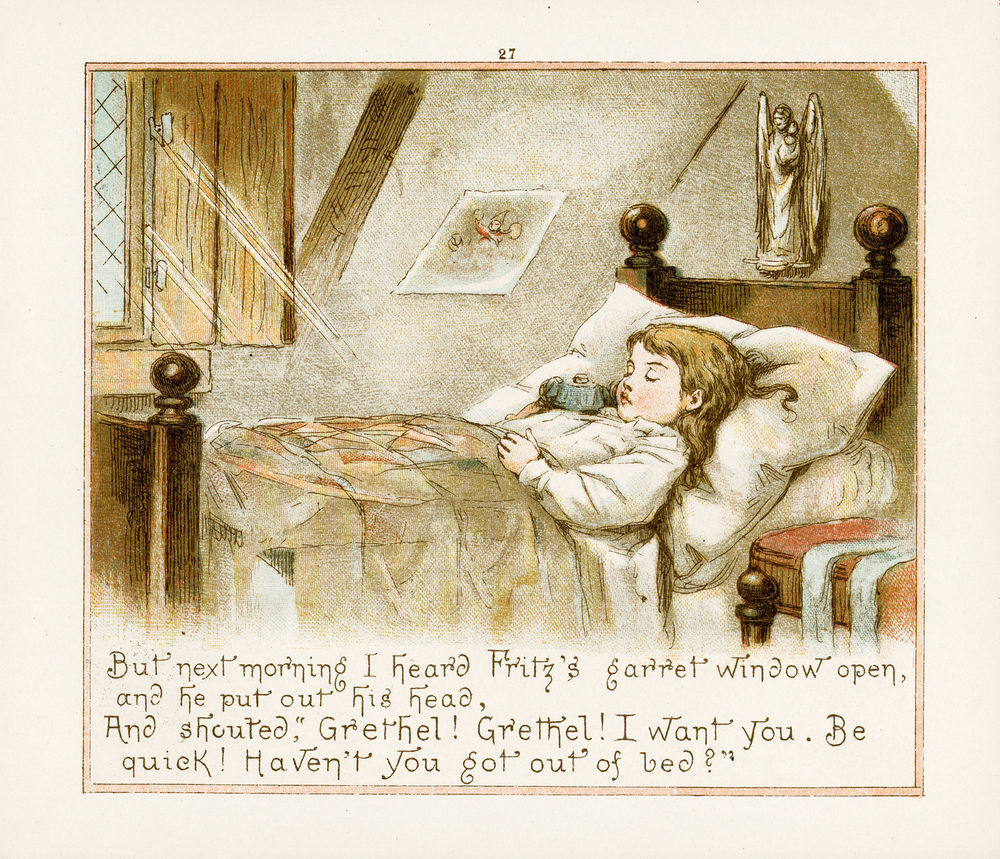 27
But next morning I heard Fritz's garret window open,
and he put out his head,
And shouted, "Grethel! Grethel! I want you. Be
quick! Haven't you got out of bed?"